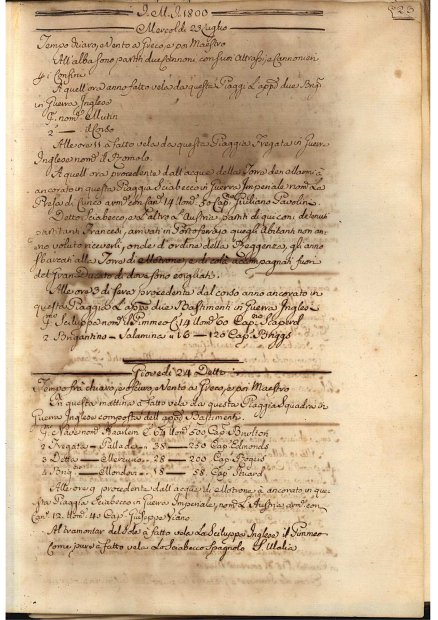 J. M. J. 1800
223
Mercoldì 23 Luglio
Tempo chiaro, e Vento a Greco, e poi Maestro
All'alba sono partiti due Cannoni con suoi Attrassi, e Cannonieri
A quell'ora anno fatto vela da questa Piaggia L'app.
in Guerra Inglese
P.º nom. Mutin
2 — il Corso
Alle ore 11 à fatto vela da questa Piaggia Fregata in Guerra
Inglese nom. il Romolo
A quell'ora procedente dall'acque della Torre del
ancorato in questa Piaggia Sciabecco in Guerra Imperiale nom. La
Presa di Cuneo arm. con Can. 14 Uom. 50 Cap. Giuliano Pavolini
Detto Sciabecco, e L'altro L'Austria, partiti di qui con i detenuti
Francesi, arrivati in Portoferraio quegli Abitanti non an
no voluto riceverli, onde d'ordine della Reggenza gli anno
alla Torre di Motrone, e di costì accompagnati fuori
del Gran Ducato di dove sono esigliati
Alle ore 3 di sera procedente dal corso anno ancorato in
questa Piaggia L'app. due Bastimenti in Guerra Inglese
Sciluppo nom. il C. 14 Uom. 60 Cap.
2 Brigantino - Salamina - 18 - 120 Cap. Briggs
Giovedì 24 Detto
Tempo frà chiaro, e scuro, e Vento a Greco, e poi Maestro
In questa mattina à fatto vela da questa Piaggia Squadra in
Guerra Inglese composta dell'app. Bastimenti
P.º Nave nom. Haarlem C. 64 Uom. 500 Cap. Burlton
2 Fregata - Pallade - 38 - 250 Cap. Edmonds
3 Detta - Mercurio - 28 - 200 Cap. Rogers
5 Brig. - Mondovì - 18 - 58 Cap. Stuard
Alle ore 9 procedente dall'acque di Motrone à ancorato in que
sta Piaggia Sciabecco in Guerra Imperiale nom. L'Austria arm. con
Can. 12 Uom. 40 Cap. Giuseppe Viano
Al tramontar del Sole à fatto vela Lo Sciluppo Inglese il
Come pure à fatto vela Lo Sciabecco Spagnolo S. Ulalia